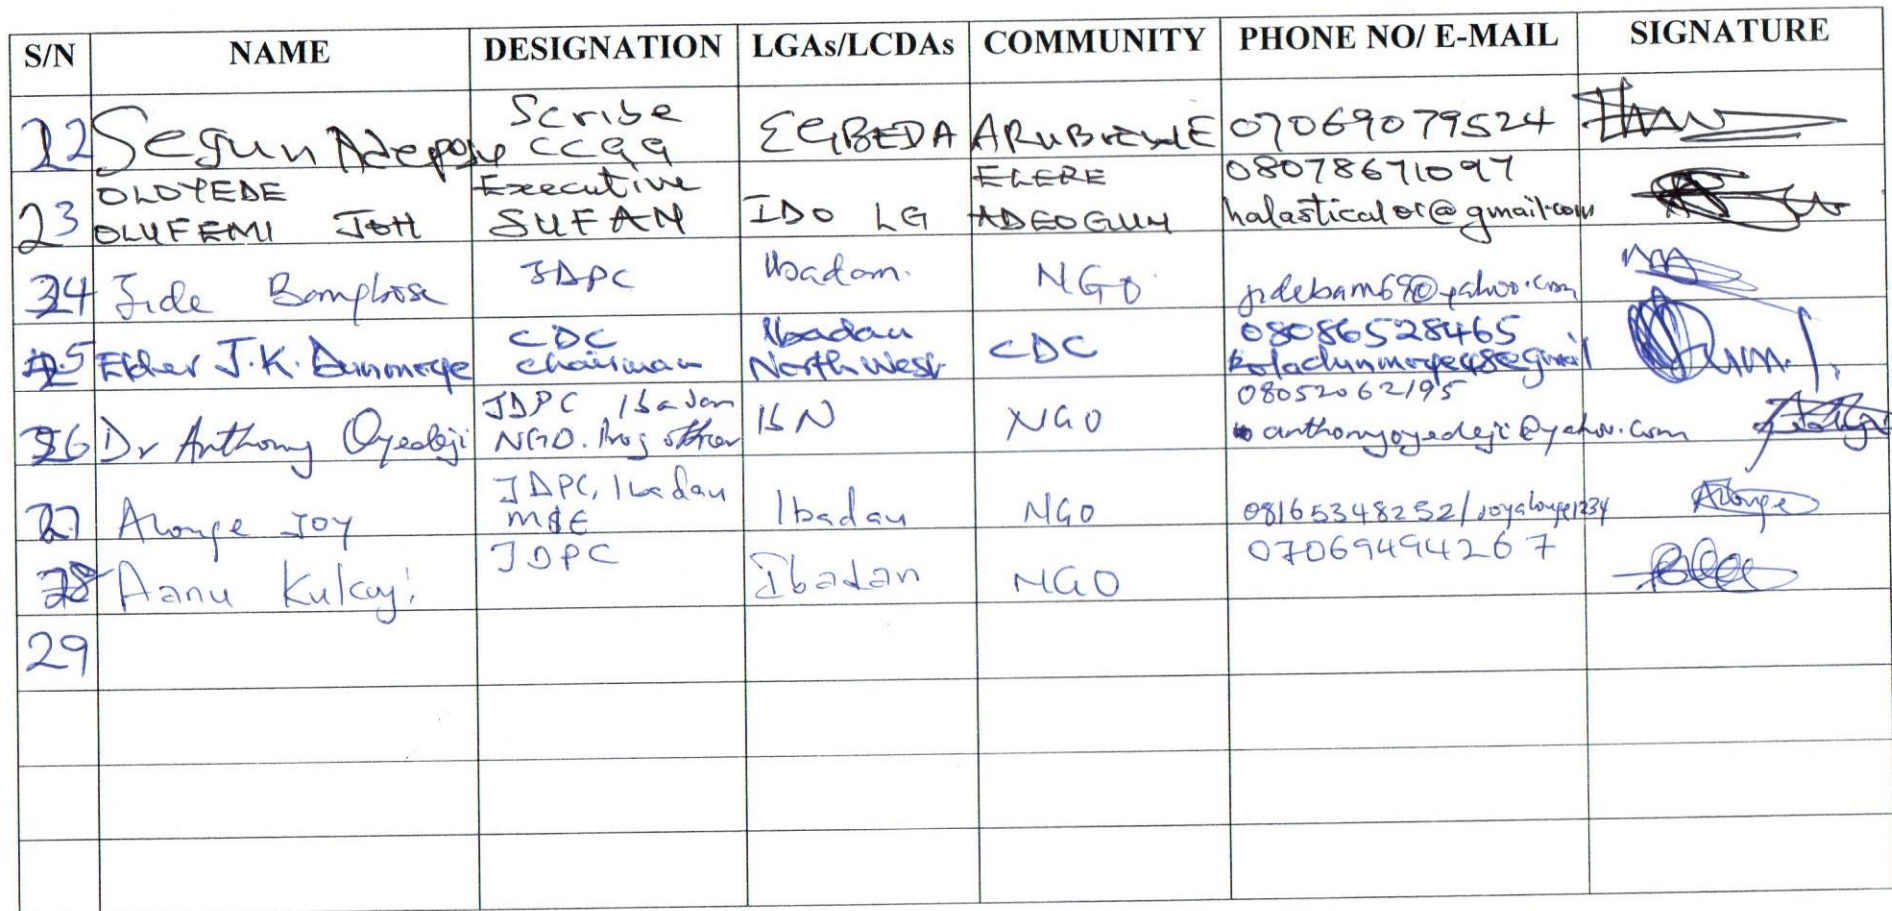 S/N NAME DESIGNATION LGAs/LCDAs COMMUNITY PHONE NO/ E-MAIL SIGNATURE
22 Segun Adepoju Scribe CCGG EGBEDA 07069079524
23 OLOYEDE OLUFEMI JOH Executive SUFAN IDO LG ELERE ADEOGUN 08078671097 halasticalor@gmail.com
24 Jide Bamgbose JDPC Ibadan. NGO jidebam69@yahoo.com
25 Elder J.K. Dunmoye CDC chairman Ibadan North West CDC 08086528465
26 Dr Anthony Oyedeji JDPC Ibadan NGO. Prog officer IBN NGO 08052062195 anthonyoyedeji@yahoo.com
27 Alonge Joy JDPC, Ibadan M&E Ibadan NGO 08165348252/joyalonge1234 Alonge
28 Aanu Kukoyi JDPC Ibadan NGO 07069494267
29